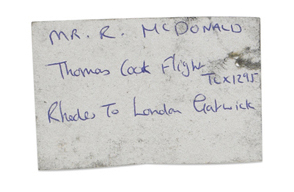 MR. R. MCDONALD
Thomas Cook Flight
TCX1295
Rhodes To London Gatwick